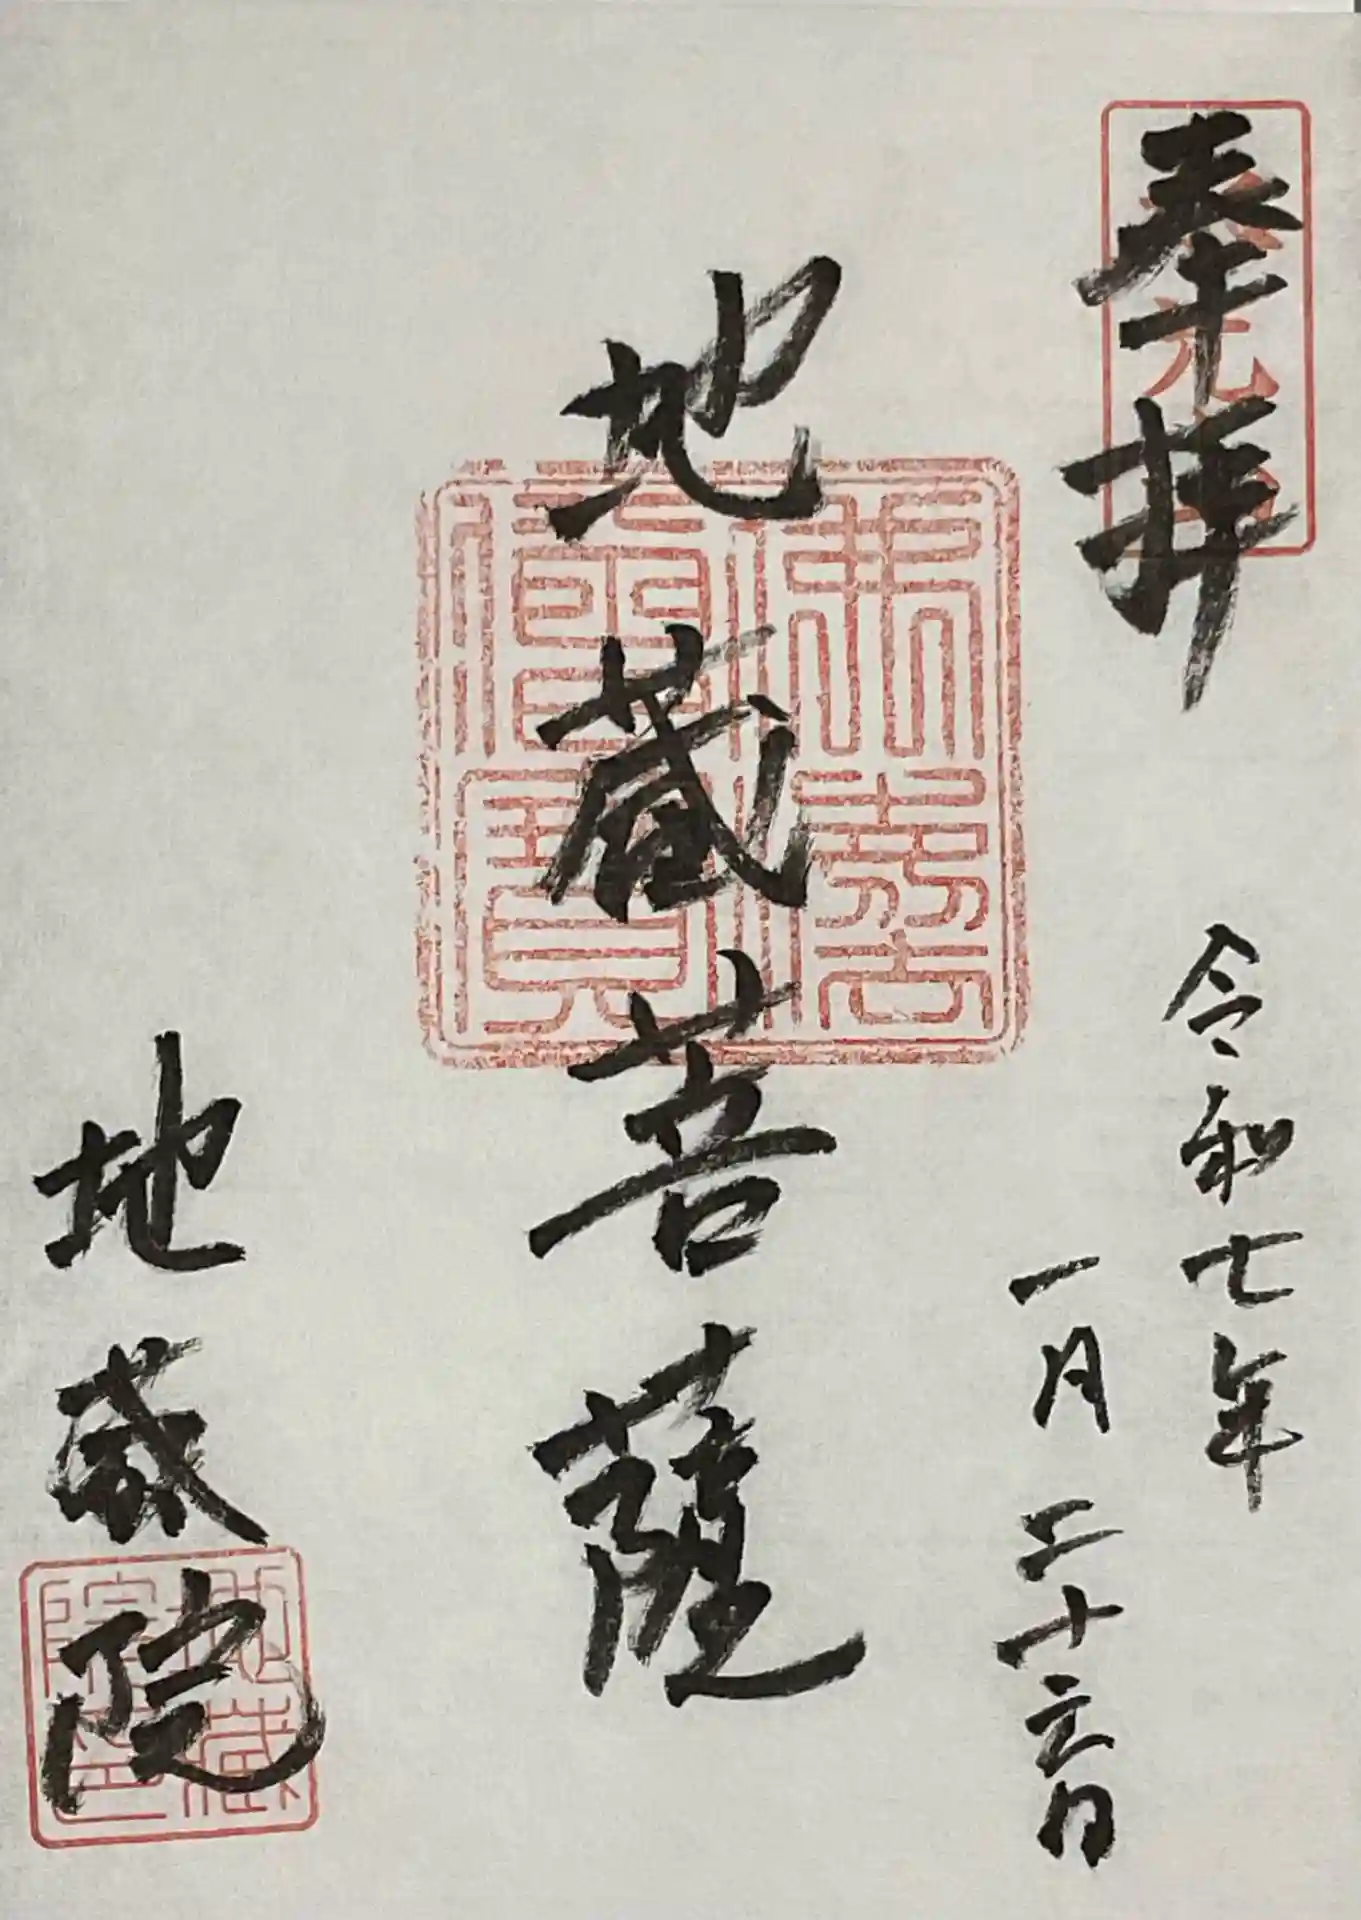 奉拝
令和七年
一月二十六日
地蔵菩薩
佛法僧寳
地蔵院